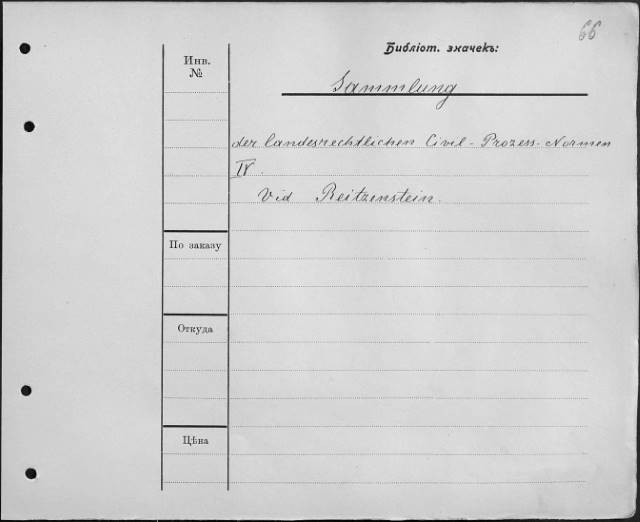 66
Библіот. значекъ:
Инв.
№
Sammlung
der landesrechtlichen Civil-Prozess-Normen
IV.
Vid Reitzenstein.
По заказу
Откуда
Цѣна